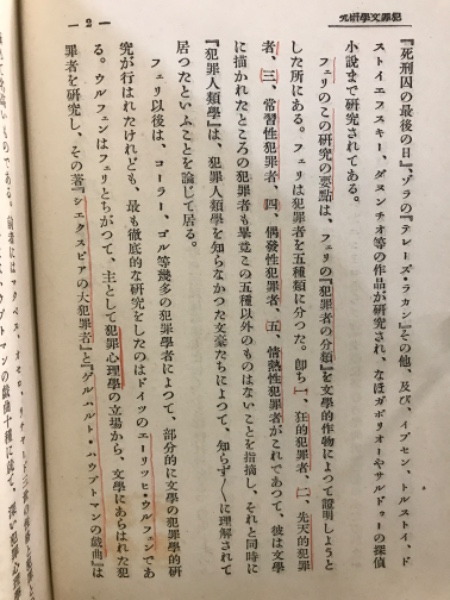 犯罪文學研究
— 2 —
『死刑囚の最後の日』、ゾラの『テレーズ・ラカン』その他、及び、イプセン、トルストイ、ド
ストイエフスキー、ダヌンチオ等の作品が研究され、なほガボリオーやサルドゥーの探偵
小説まで研究されてある。
フェリのこの研究の要點は、フェリの『犯罪者の分類』を文學的作物によつて證明しようと
した所にある。フェリは犯罪者を五種類に分つた。卽ち一、狂的犯罪者、二、先天的犯罪
者、三、常習性犯罪者、四、偶發性犯罪者、五、情熱性犯罪者がこれであつて、彼は文學
に描かれたところの犯罪者も畢竟この五種以外のものはないことを指摘し、それと同時に
『犯罪人類學』は、犯罪人類學を知らなかつた文豪たちによつて、知らず〱に理解されて
居つたといふことを論じて居る。
フェリ以後は、コーラー、ゴル等幾多の犯罪學者によつて、部分的に文學の犯罪學的研
究が行はれたけれども、最も徹底的な研究をしたのはドイツのエーリッヒ・ウルフェンであ
る。ウルフェンはフェリとちがつて、主として犯罪心理學の立場から、文學にあらはれた犯
罪者を研究し、その著『シエクスピアの大犯罪者』と『ゲルハルト・ハウプトマンの戯曲』は